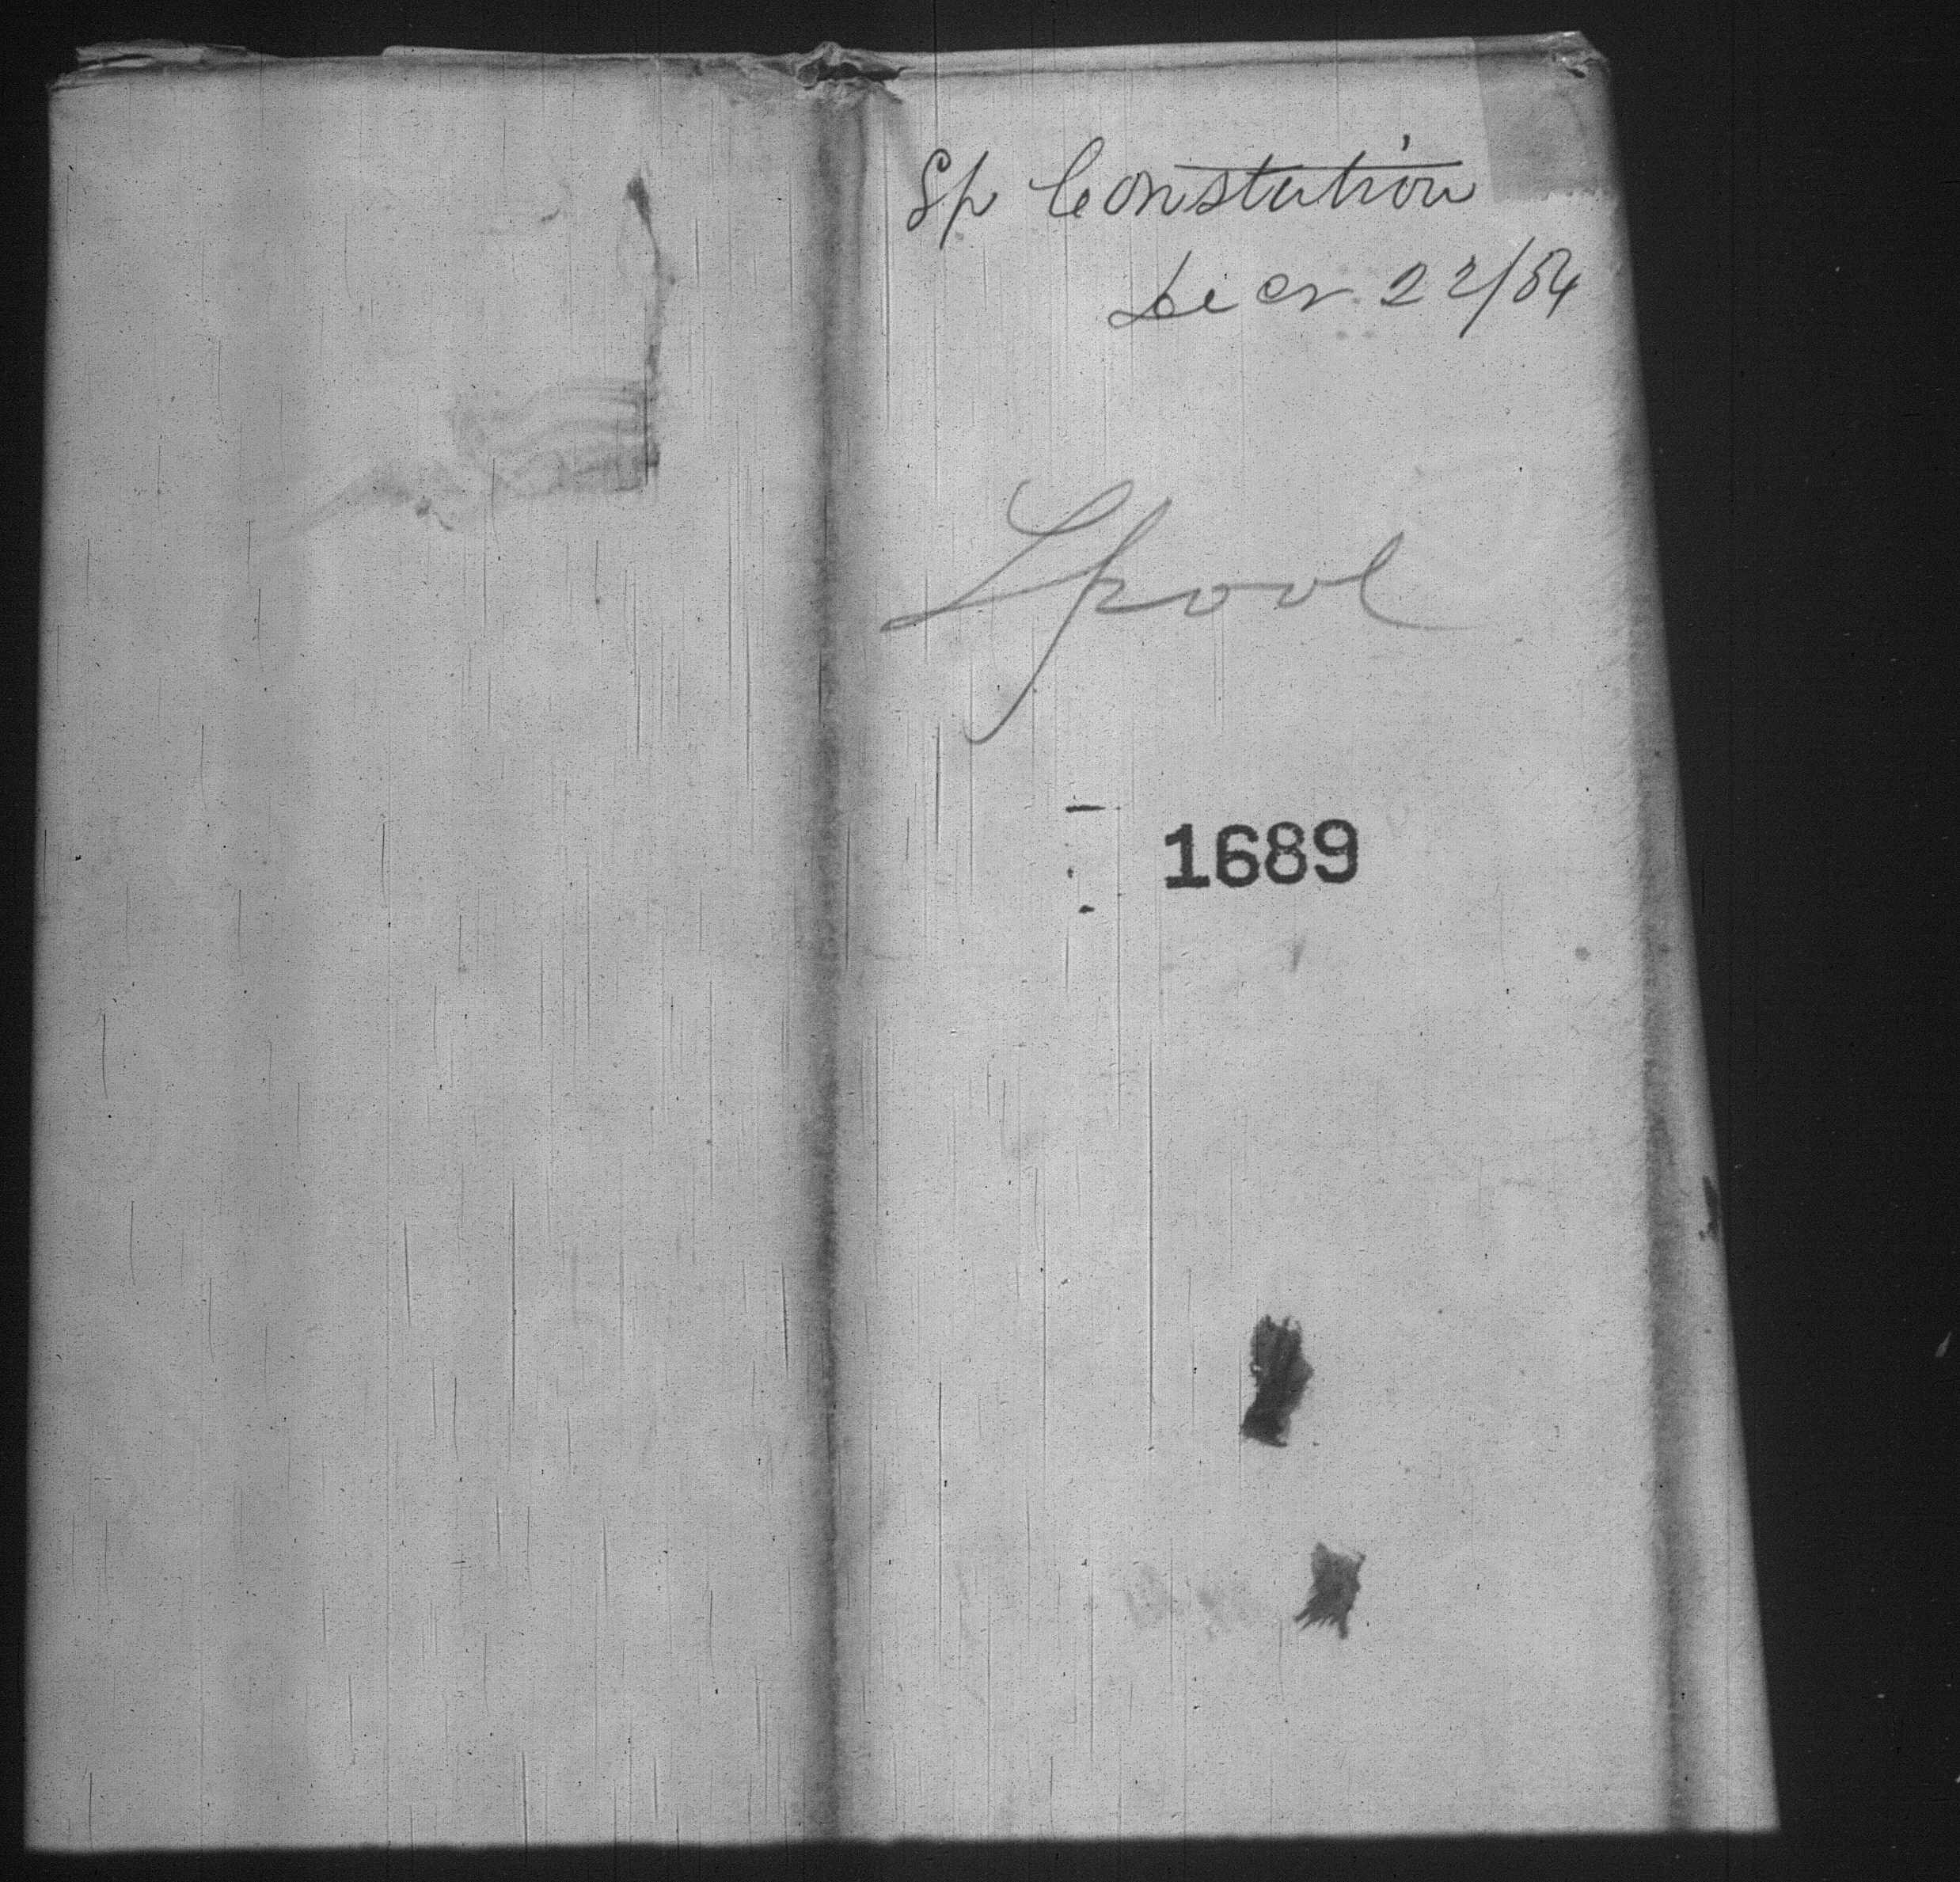 Sp Constution
Decr. 22/54
Lpool
1689